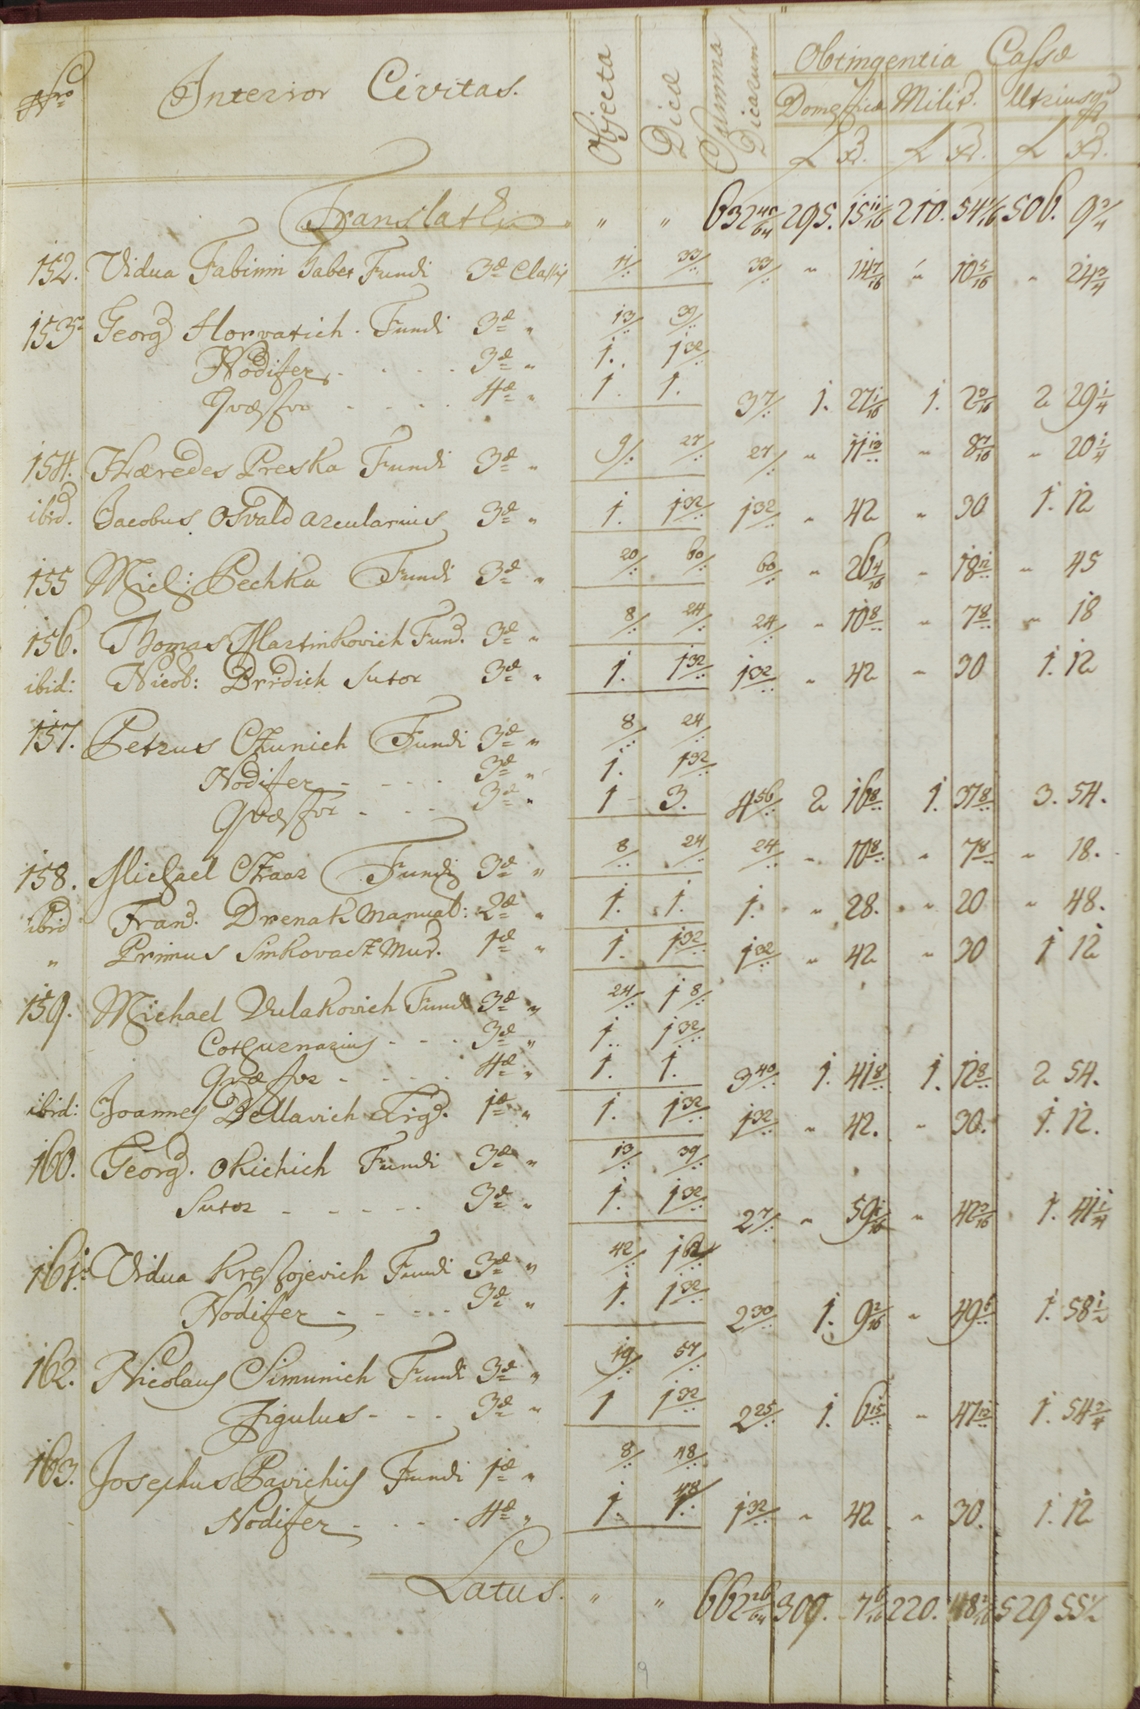 Nro Interior Civitas. Objecta Dicæ Summa Dicarum Obtingentia Cassæ
Domesticæ Milit. Utriusq
f xr. f xr. f xr.
Translatum " " 632 40/64 295. 15 11/16 210. 54 1/16 506. 9 3/4
152. Vidua Fabinni Faber Fundi 3æ Classis 11/.. 33/.. 33/.. " 14 7/16 " 10 5/16 " 24 3/4
153 Georg Horvatich. Fundi 3æ " 13/.. 39/..
Nodifex 3æ " 1. 1 32/..
Quæstor 4æ " 1 1. 3 7/.. 1. 27 1/16 1. 2 3/16 2 29 1/4
154. Hæredes Preska Fundi 3æ " 9/.. 27/.. 27/.. " 11 13/.. " 8 7/16 " 20 1/4
ibid. Jacobus Osvald arcularius 3æ " 1. 1 32/.. 1 32/.. " 42 " 30 1. 12
155 Mich: Pechka Fundi 3æ " 20/.. 60/.. 60/.. " 26 4/16 " 18 12/.. " 45
156. Thomas Martinkovich Fund. 3æ " 8/.. 24/.. 24/.. " 10 8/.. " 7 8/.. " 18
ibid: Nicob: Brdich Sutor 3æ " 1. 1 32/.. 1 32/.. " 42 " 30 1. 12
157. Petrus Czunich Fundi 3æ " 8/.. 24/..
Nodifex 3æ " 1. 1 32/..
Quæstor 3æ " 1 3. 4 56/.. 2 16 8/.. 1. 37 8/.. 3. 54.
158. Michael Czaar Fundi 3æ " 8/.. 24/.. 24/.. " 10 8/.. " 7 8/.. " 18.
ibid Franc. Drenak Manual: 2æ " 1. 1. 1. " 28. " 20 " 48.
" Primus Sinkovacz Mur. 1æ " 1. 1 32/.. 1 32/.. " 42 " 30 1 12
159. Michael Vulakovich Fundi 3æ " 24/.. 1 8/..
Cothurnarius 3æ " 1. 1 32/..
Quæstor 4æ " 1. 1. 3 40/.. 1. 41 8/.. 1. 12 8/.. 2 54.
ibid: Joannes Bellavich Lig. 1æ " 1. 1 32/.. 1 32/.. " 42. " 30. 1. 12.
160. Georg. Okichich Fundi 3æ " 13/.. 39/..
Sutor 3æ " 1. 1 32/.. 2 7/.. " 59 1/16 " 42 3/16 1. 41 1/4
161. Vidua Krestojevich Fundi 3æ " 42/.. 1 62/..
Nodifex 3æ " 1. 1 32/.. 2 30/.. 1. 9 2/16 " 49 6/.. 1. 58 1/2
162. Nicolaus Simunich Fundi 3æ " 19/.. 57/..
Figulus 3æ " 1 1 32/.. 2 25/.. 1. 6 15/.. " 47 12/.. 1. 54 3/4
163. Josephus Pavichich Fundi 1æ " 8/.. 48/..
Nodifex 4æ " 1. 1. 48/.. 1 32/.. " 42 " 30. 1. 12
Latus. " " 662 26/64 309. 7 6/16 220. 48 2/16 529 55 1/2
9